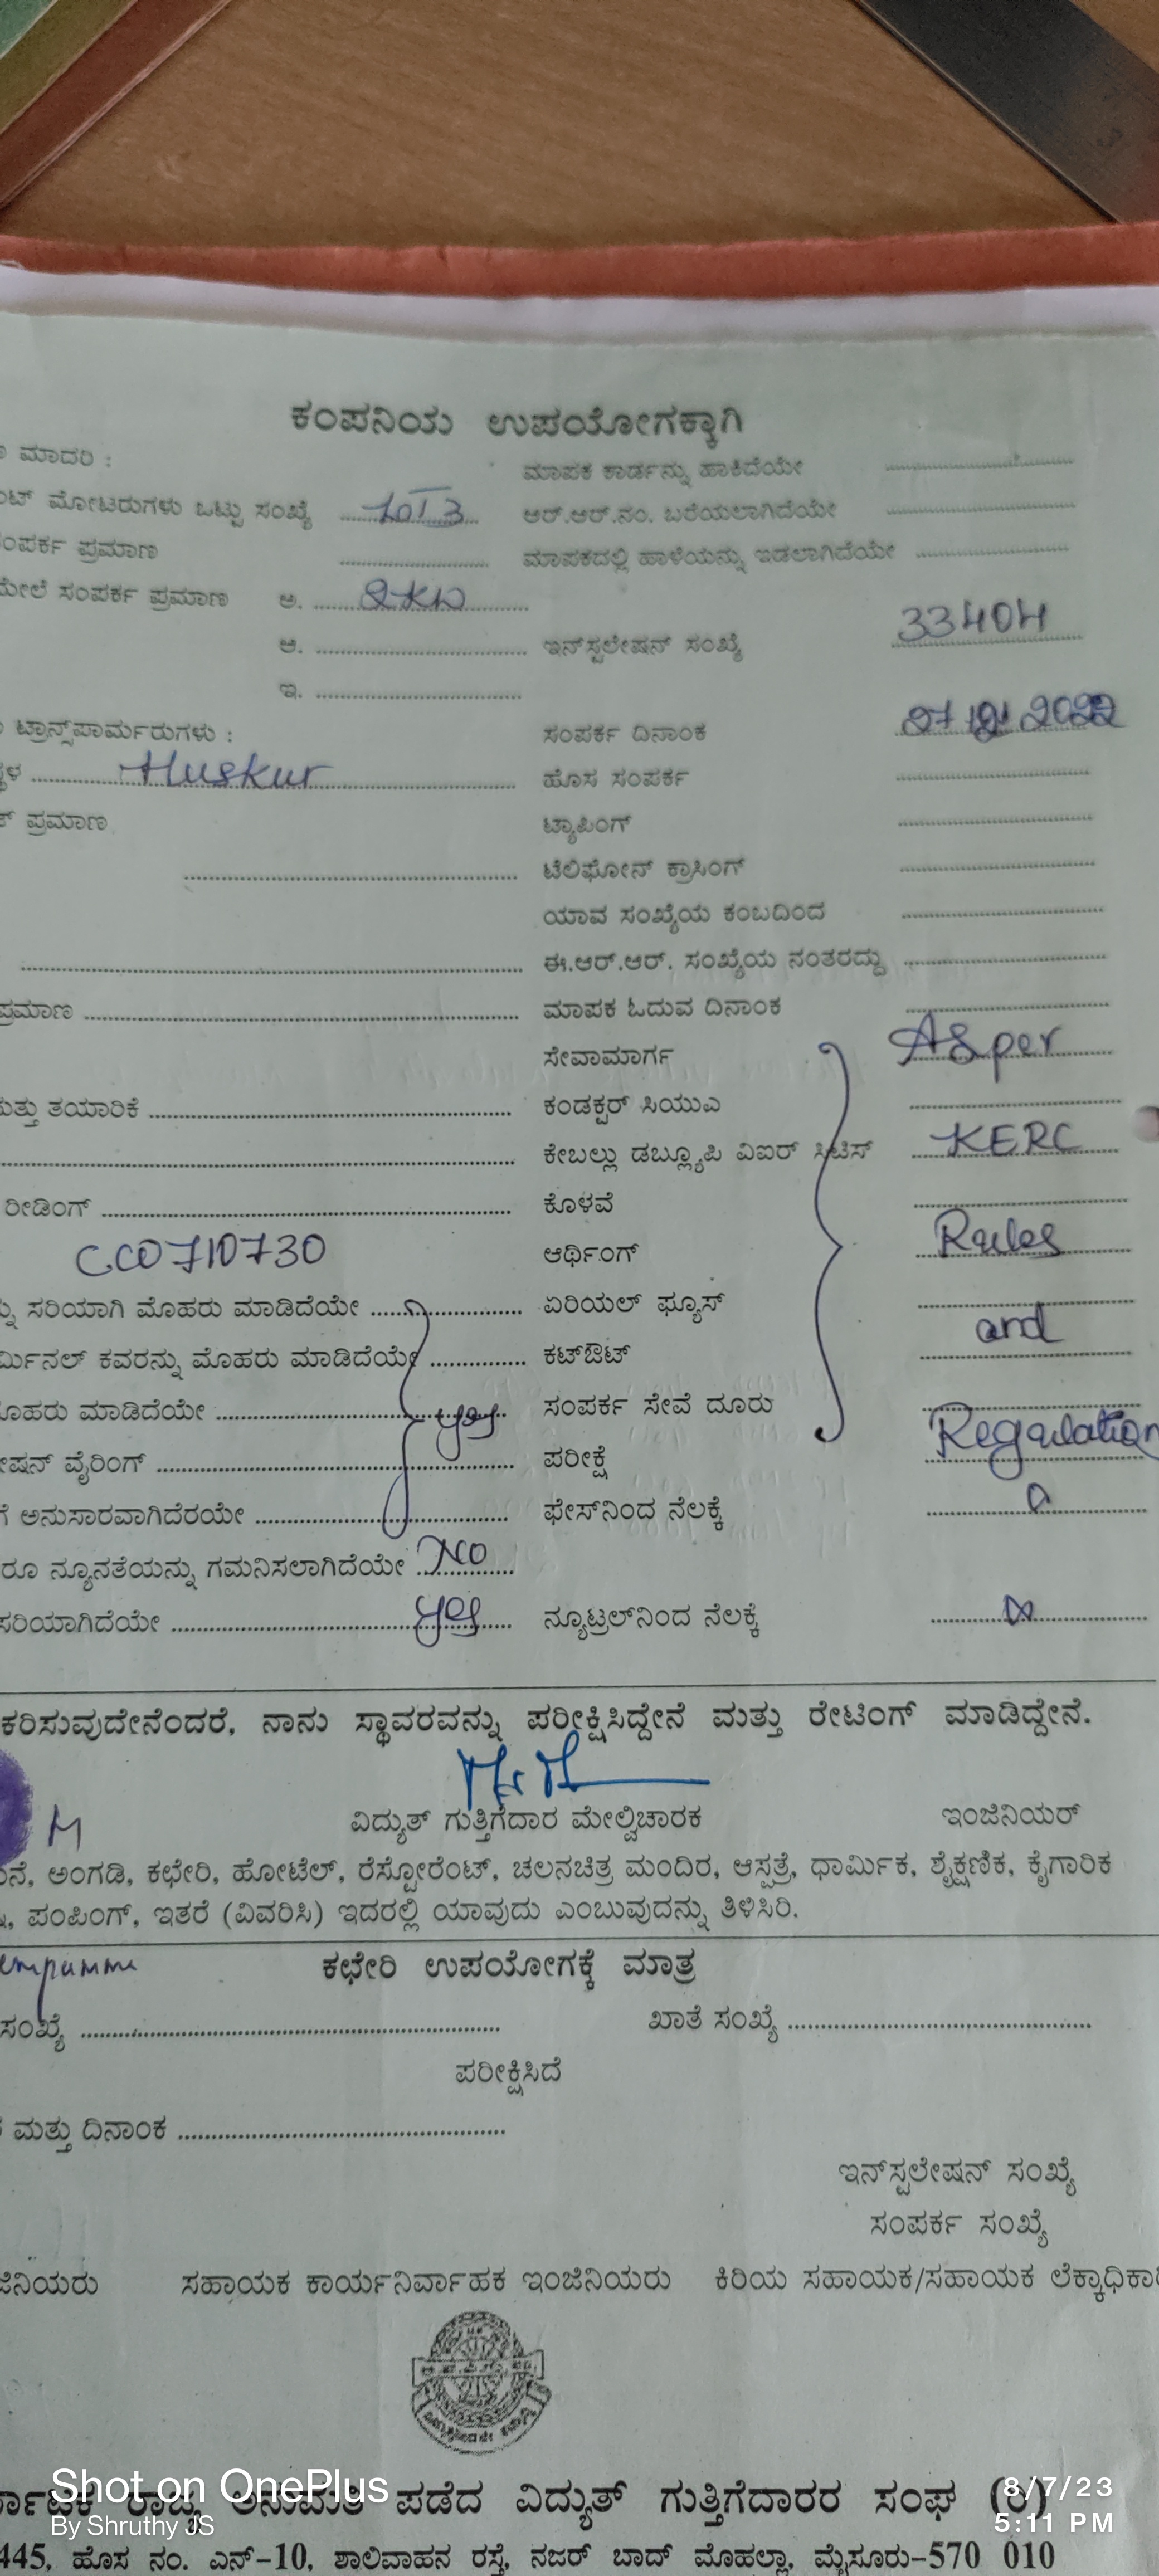 ಕಂಪನಿಯ ಉಪಯೋಗಕ್ಕಾಗಿ
ಮಾದರಿ :
ಮಾಪಕ ಕಾರ್ಡನ್ನು ಹಾಕಿದೆಯೇ
ಮೋಟರುಗಳು ಒಟ್ಟು ಸಂಖ್ಯೆ
ಆರ್.ಆರ್.ನಂ. ಬರೆಯಲಾಗಿದೆಯೇ
ಸಂಪರ್ಕ ಪ್ರಮಾಣ
ಮಾಪಕದಲ್ಲಿ ಹಾಳೆಯನ್ನು ಇಡಲಾಗಿದೆಯೇ
ಮೇಲೆ ಸಂಪರ್ಕ ಪ್ರಮಾಣ ಅ. 2KW
ಆ. ಇನ್‌ಸ್ಟಲೇಷನ್ ಸಂಖ್ಯೆ 33404
ಇ.
ಟ್ರಾನ್ಸ್‌ಪಾರ್ಮರುಗಳು : ಸಂಪರ್ಕ ದಿನಾಂಕ 2022
Huskur ಹೊಸ ಸಂಪರ್ಕ
ಪ್ರಮಾಣ ಟ್ಯಾಪಿಂಗ್
ಟೆಲಿಫೋನ್ ಕ್ರಾಸಿಂಗ್
ಯಾವ ಸಂಖ್ಯೆಯ ಕಂಬದಿಂದ
ಈ.ಆರ್.ಆರ್. ಸಂಖ್ಯೆಯ ನಂತರದ್ದು
ಪ್ರಮಾಣ ಮಾಪಕ ಓದುವ ದಿನಾಂಕ
ಸೇವಾಮಾರ್ಗ Asper
ಮತ್ತು ತಯಾರಿಕೆ ಕಂಡಕ್ಟರ್ ಸಿಯುಎ
ಕೇಬಲ್ಲು ಡಬ್ಲ್ಯೂಪಿ ವಿಐರ್ ಸಿಟಿಸ್ KERC
ರೀಡಿಂಗ್ ಕೊಳವೆ
CC0710730 ಆರ್ಥಿಂಗ್ Rules
ಸರಿಯಾಗಿ ಮೊಹರು ಮಾಡಿದೆಯೇ ಏರಿಯಲ್ ಫ್ಯೂಸ್ and
ಕವರನ್ನು ಮೊಹರು ಮಾಡಿದೆಯೇ ಕಟ್‌ಔಟ್
ಮೊಹರು ಮಾಡಿದೆಯೇ yes ಸಂಪರ್ಕ ಸೇವೆ ದೂರು Regulation
ವೈರಿಂಗ್ ಪರೀಕ್ಷೆ
ಅನುಸಾರವಾಗಿದೆರಯೇ ಫೇಸ್‌ನಿಂದ ನೆಲಕ್ಕೆ
ನ್ಯೂನತೆಯನ್ನು ಗಮನಿಸಲಾಗಿದೆಯೇ No
ಸರಿಯಾಗಿದೆಯೇ yes ನ್ಯೂಟ್ರಲ್‌ನಿಂದ ನೆಲಕ್ಕೆ
ಕರಿಸುವುದೇನೆಂದರೆ, ನಾನು ಸ್ಥಾವರವನ್ನು ಪರೀಕ್ಷಿಸಿದ್ದೇನೆ ಮತ್ತು ರೇಟಿಂಗ್ ಮಾಡಿದ್ದೇನೆ.
ವಿದ್ಯುತ್ ಗುತ್ತಿಗೆದಾರ ಮೇಲ್ವಿಚಾರಕ ಇಂಜಿನಿಯರ್
ಅಂಗಡಿ, ಕಛೇರಿ, ಹೋಟೆಲ್, ರೆಸ್ಟೋರೆಂಟ್, ಚಲನಚಿತ್ರ ಮಂದಿರ, ಆಸ್ಪತ್ರೆ, ಧಾರ್ಮಿಕ, ಶೈಕ್ಷಣಿಕ, ಕೈಗಾರಿಕ
ಪಂಪಿಂಗ್, ಇತರೆ (ವಿವರಿಸಿ) ಇದರಲ್ಲಿ ಯಾವುದು ಎಂಬುವುದನ್ನು ತಿಳಿಸಿರಿ.
ಕಛೇರಿ ಉಪಯೋಗಕ್ಕೆ ಮಾತ್ರ
ಸಂಖ್ಯೆ ಖಾತೆ ಸಂಖ್ಯೆ
ಪರೀಕ್ಷಿಸಿದೆ
ಮತ್ತು ದಿನಾಂಕ
ಇನ್‌ಸ್ಟಲೇಷನ್ ಸಂಖ್ಯೆ
ಸಂಪರ್ಕ ಸಂಖ್ಯೆ
ಸಹಾಯಕ ಕಾರ್ಯನಿರ್ವಾಹಕ ಇಂಜಿನಿಯರು ಕಿರಿಯ ಸಹಾಯಕ/ಸಹಾಯಕ ಲೆಕ್ಕಾಧಿಕಾರಿ
ಪಡೆದ ವಿದ್ಯುತ್ ಗುತ್ತಿಗೆದಾರರ ಸಂಘ (ರಿ)
445, ಹೊಸ ನಂ. ಎನ್-10, ಶಾಲಿವಾಹನ ರಸ್ತೆ, ನಜರ್ ಬಾದ್ ಮೊಹಲ್ಲಾ, ಮೈಸೂರು-570 010
Shot on OnePlus
By Shruthy JS
8/7/23
5:11 PM